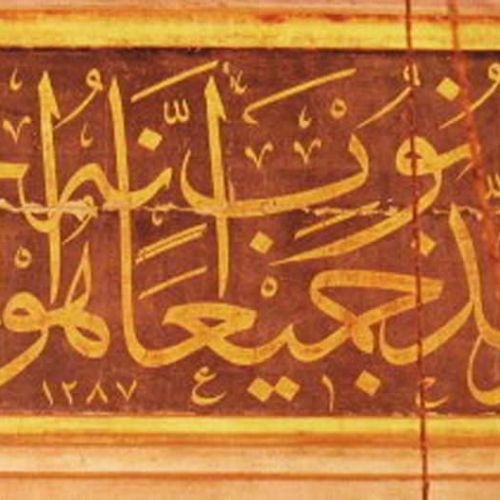 لذنوب جميعا إنّه هو
١٢٨٧